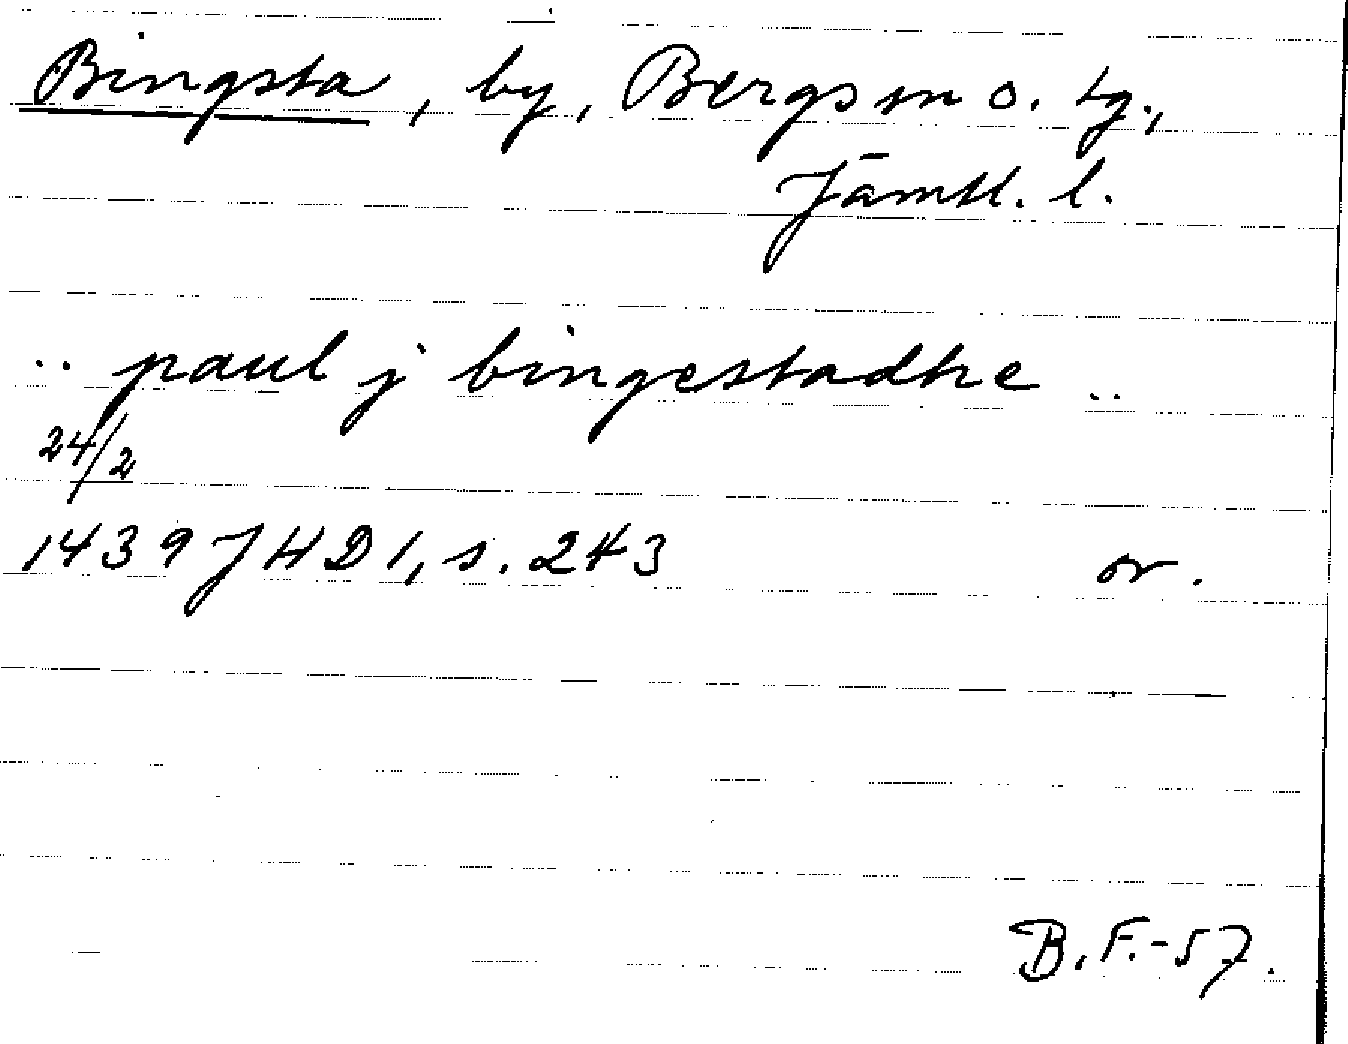 Bingsta, by, Bergs sn o. tg.,
Jämtl. l.
.. paul j bingestadhe ..
24/2
1439 JHD 1, s. 243 or.
B.F.-57.